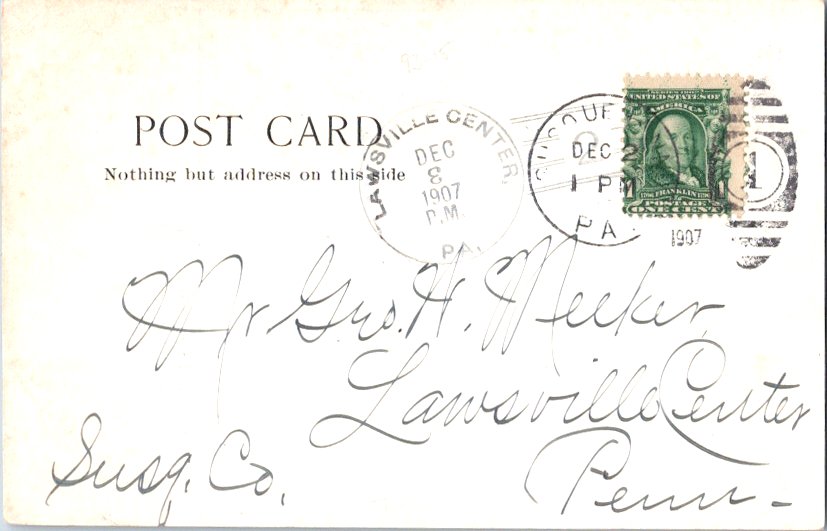 POST CARD
Nothing but address on this side
LAWSVILLE CENTER,
DEC
3
1907
P.M.
PA.
DEC 2
1 PM
PA
1907
1
SERIES 1902
UNITED STATES OF
AMERICA
1706 FRANKLIN 1790
POSTAGE
ONE CENT
Mr Geo. H. Meeker
Lawsville Center
Susq. Co. Penn-